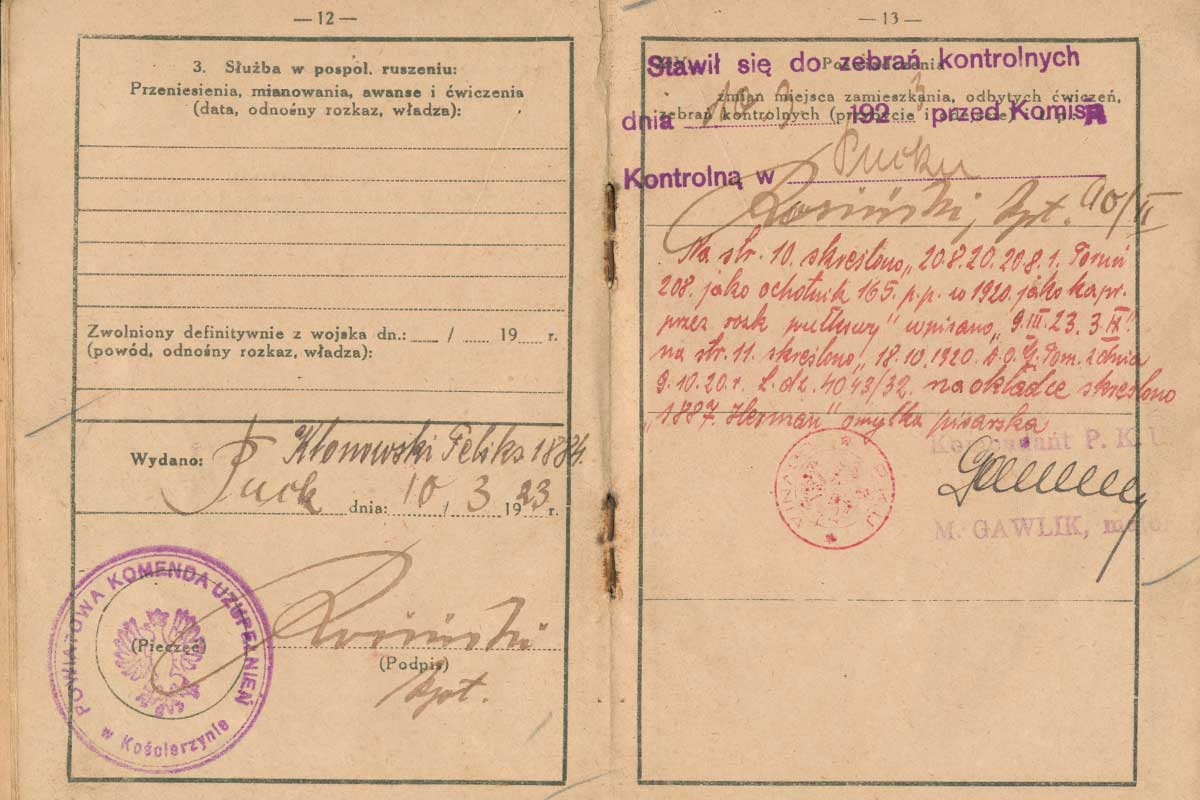 — 12 —
3. Służba w pospol. ruszeniu:
Przeniesienia, mianowania, awanse i ćwiczenia
(data, odnośny rozkaz, władza):
Zwolniony definitywnie z wojska dn.: / 19 r.
(powód, odnośny rozkaz, władza):
Kłonowski Feliks 1884.
Wydano: Puck dnia: 10 / 3 1923 r.
POWIATOWA KOMENDA UZUPEŁNIEŃ
w Kościerzynie
(Pieczęć)
(Podpis)
— 13 —
Stawił się do zebrań kontrolnych
Poświadczenia
zmian miejsca zamieszkania, odbytych ćwiczeń,
dnia 10 3 1923 przed Komisją
zebrań kontrolnych (przybycie i
Kontrolną w Pucku
Rosiński, 10/II
Na str. 10. skreślono „20.8.20. 208.1. Toruń
208. jako ochotnik 165. p.p. w 1920. jako kapr.
przez rozk pułkowy" wpisano „9.III.23. 3.IX".
na str. 11. skreślono „18.10.1920. D.O.G. Pom. z dnia
9.10.20.r. L.dz. 4043/32. na okładce skreślono
„1887. Herman" omyłka pisarska
Komendant P. K. U
M. GAWLIK, major